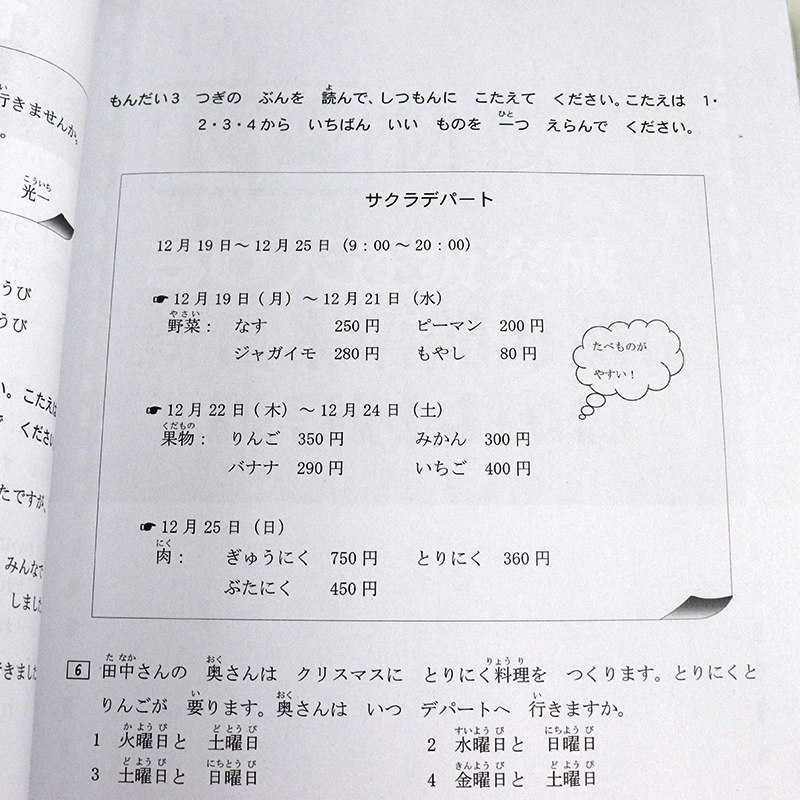 行きませんか。
。
光一
こういち
うび
うび
い。こたえは
くださ
たですが、
みんなで
しまし
行きまし
もんだい3 つぎの ぶんを 読んで、しつもんに こたえて ください。こたえは 1・
2・3・4から いちばん いい ものを 一つ えらんで ください。
サクラデパート
12月19日～12月25日（9：00～20：00）
☛12月19日（月）～12月21日（水）
野菜： なす 250円 ピーマン 200円
ジャガイモ 280円 もやし 80円
たべものが
やすい！
☛12月22日（木）～12月24日（土）
果物： りんご 350円 みかん 300円
バナナ 290円 いちご 400円
☛12月25日（日）
肉： ぎゅうにく 750円 とりにく 360円
ぶたにく 450円
6 田中さんの 奥さんは クリスマスに とりにく料理を つくります。とりにくと
りんごが 要ります。奥さんは いつ デパートへ 行きますか。
1 火曜日と 土曜日 2 水曜日と 日曜日
3 土曜日と 日曜日 4 金曜日と 土曜日